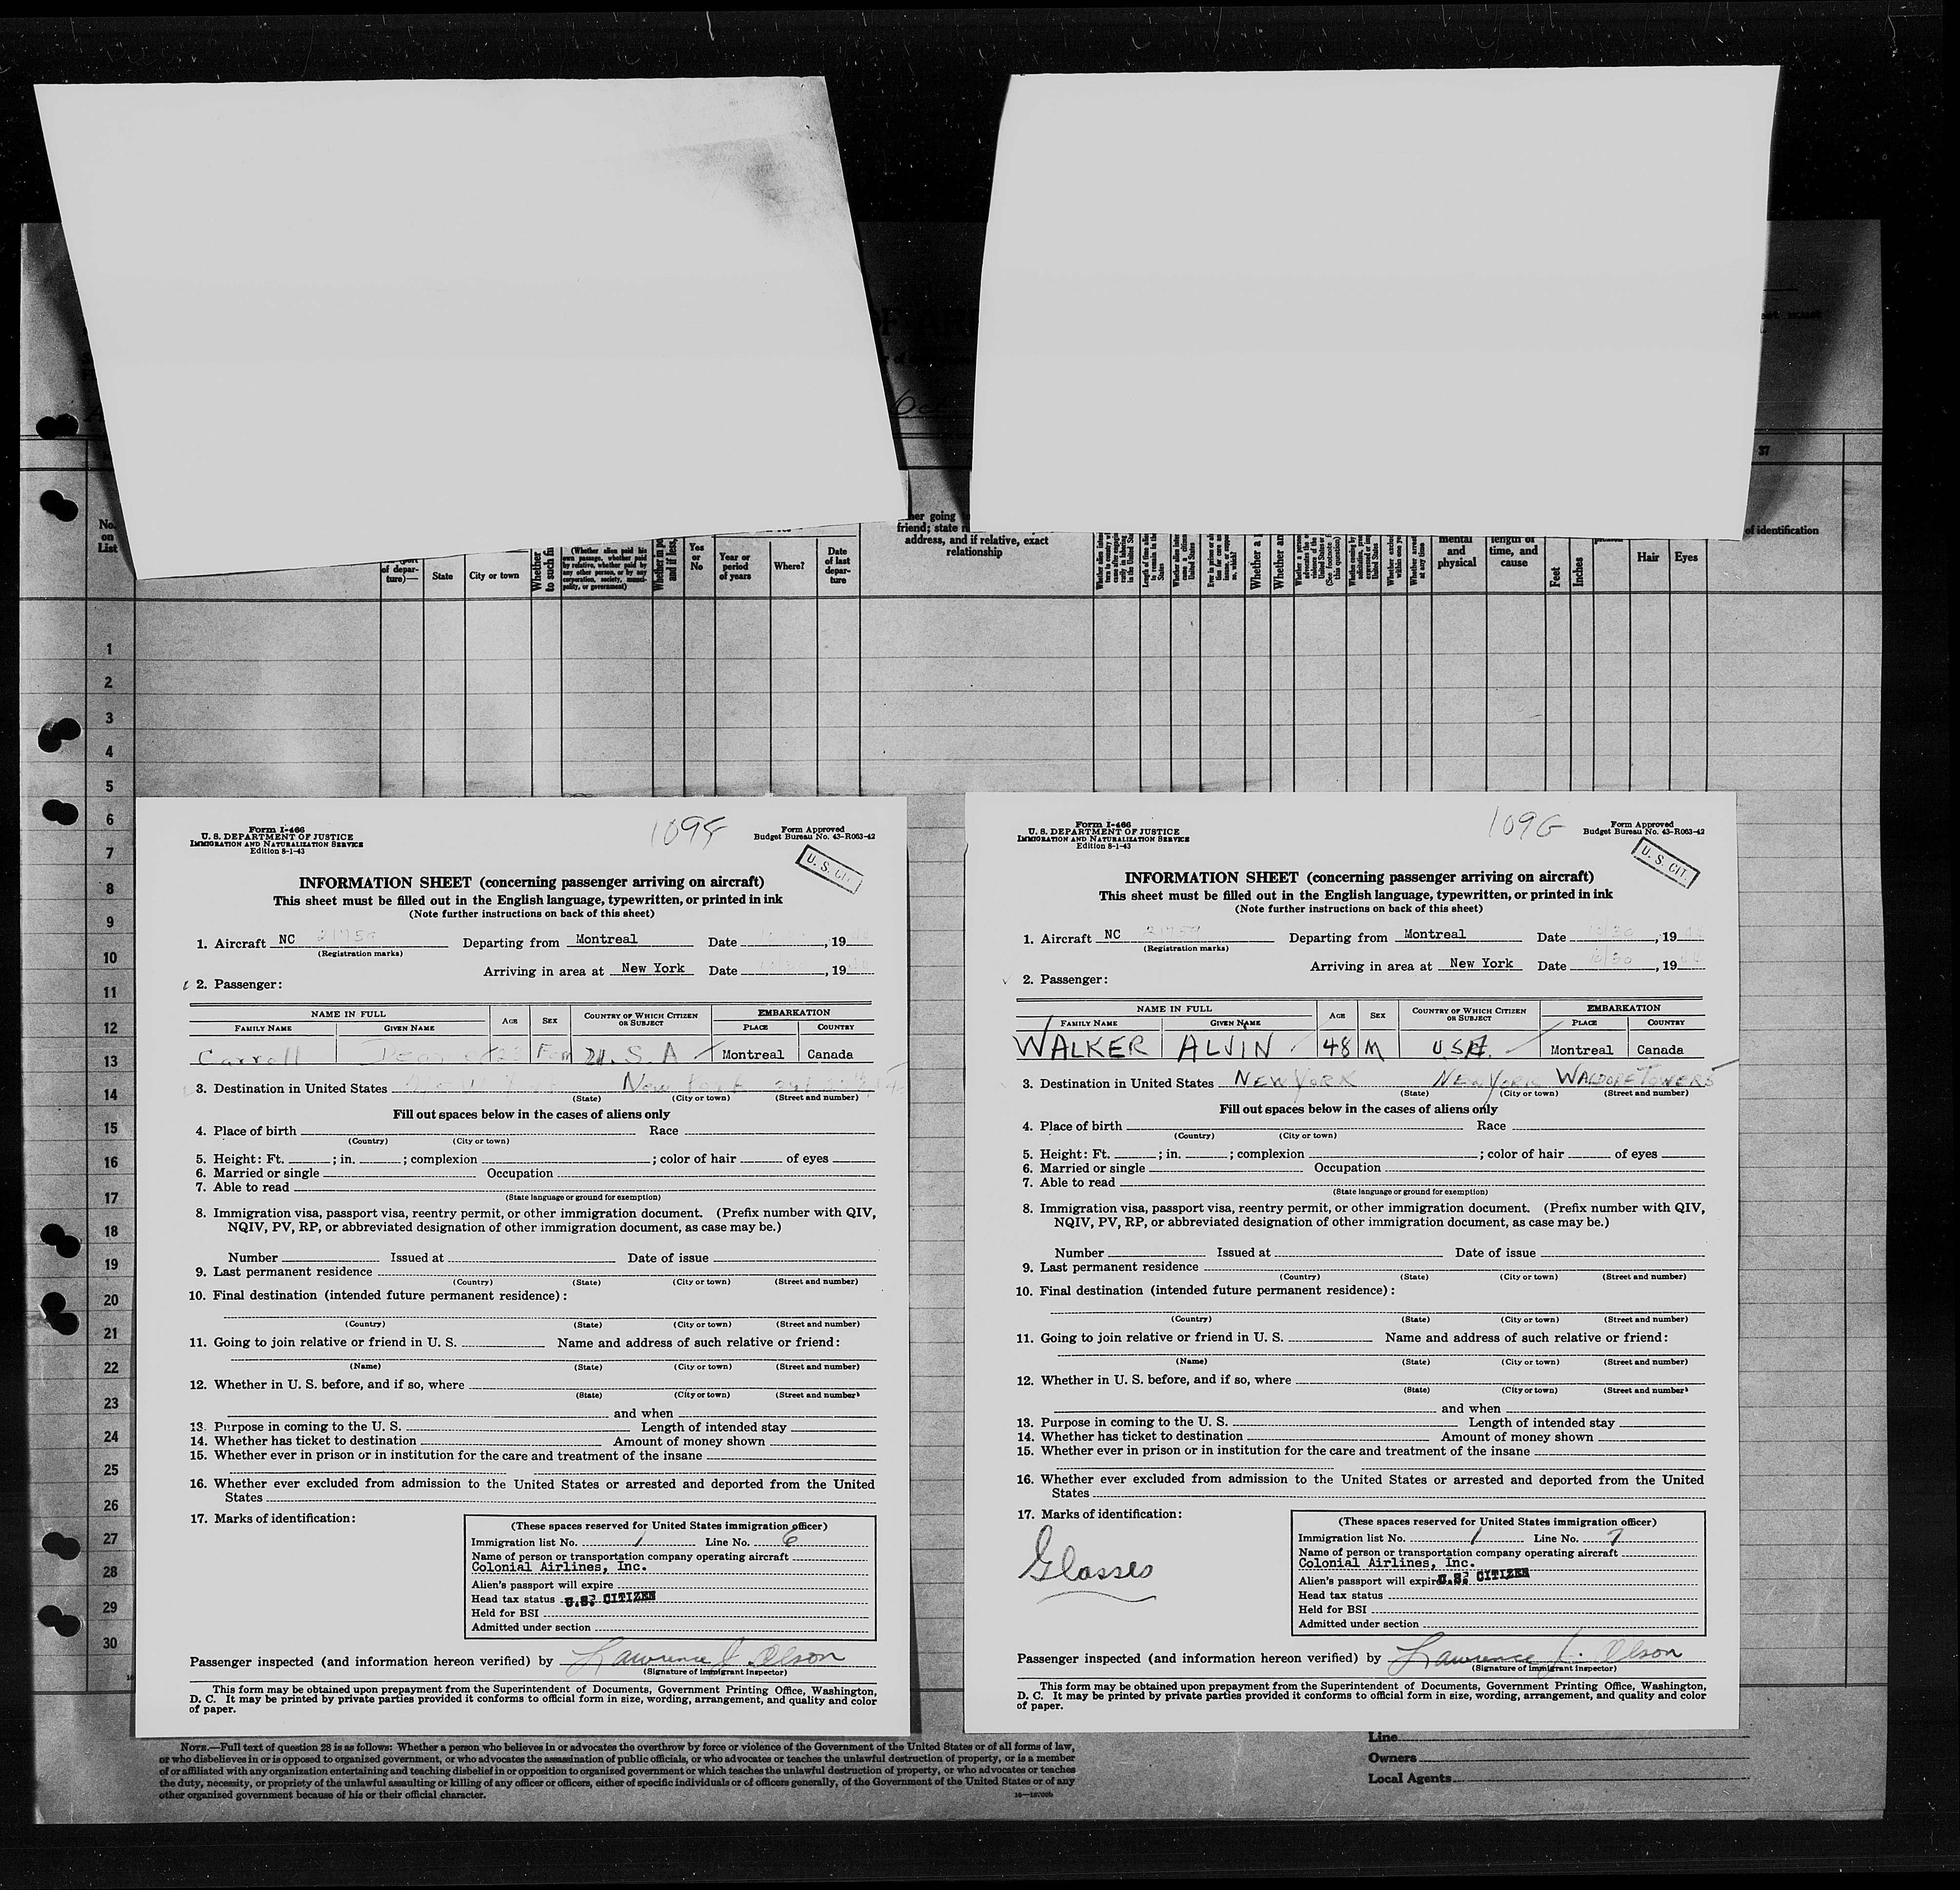 OF
Oct
37
No.
on
List
of depar-
ture)—
State
City or town
Whether
to such
(Whether alien paid his
own passage, whether paid
by relative, whether paid by
any other person, or by any
corporation, society, munici-
pality, or government)
Whether in
and if less,
Yes
or
No
Year or
period
of years
Where?
Date
of last
depar-
ture
her going
friend; state
address, and if relative, exact
relationship
Whether a
Whether an
mental
and
physical
length of
time, and
cause
Feet
Inches
Hair
Eyes
of identification
1
2
3
4
5
6
7
8
9
10
11
12
13
14
15
16
17
18
19
20
21
22
23
24
25
26
27
28
29
30
Form I-466
U. S. DEPARTMENT OF JUSTICE
IMMIGRATION AND NATURALIZATION SERVICE
Edition 8-1-43
109F
Form Approved
Budget Bureau No. 43-R063-42
U. S. CIT.
INFORMATION SHEET (concerning passenger arriving on aircraft)
This sheet must be filled out in the English language, typewritten, or printed in ink
(Note further instructions on back of this sheet)
1. Aircraft NC 21759 Departing from Montreal Date , 19
(Registration marks)
Arriving in area at New York Date , 19
2. Passenger:
NAME IN FULL AGE SEX COUNTRY OF WHICH CITIZEN OR SUBJECT EMBARKATION
FAMILY NAME GIVEN NAME PLACE COUNTRY
Carroll Fem U. S. A Montreal Canada
3. Destination in United States New York
(State) (City or town) (Street and number)
Fill out spaces below in the cases of aliens only
4. Place of birth Race
(Country) (City or town)
5. Height: Ft. ; in. ; complexion ; color of hair of eyes
6. Married or single Occupation
7. Able to read
(State language or ground for exemption)
8. Immigration visa, passport visa, reentry permit, or other immigration document. (Prefix number with QIV,
NQIV, PV, RP, or abbreviated designation of other immigration document, as case may be.)
Number Issued at Date of issue
9. Last permanent residence
(Country) (State) (City or town) (Street and number)
10. Final destination (intended future permanent residence):
(Country) (State) (City or town) (Street and number)
11. Going to join relative or friend in U. S. Name and address of such relative or friend:
(Name) (State) (City or town) (Street and number)
12. Whether in U. S. before, and if so, where
(State) (City or town) (Street and number)
and when
13. Purpose in coming to the U. S. Length of intended stay
14. Whether has ticket to destination Amount of money shown
15. Whether ever in prison or in institution for the care and treatment of the insane
16. Whether ever excluded from admission to the United States or arrested and deported from the United
States
17. Marks of identification:
(These spaces reserved for United States immigration officer)
Immigration list No. 1 Line No. 6
Name of person or transportation company operating aircraft
Colonial Airlines, Inc.
Alien's passport will expire
Head tax status U.S. CITIZEN
Held for BSI
Admitted under section
Passenger inspected (and information hereon verified) by Lawrence J. Olson
(Signature of immigrant inspector)
This form may be obtained upon prepayment from the Superintendent of Documents, Government Printing Office, Washington,
D. C. It may be printed by private parties provided it conforms to official form in size, wording, arrangement, and quality and color
of paper.
Form I-466
U. S. DEPARTMENT OF JUSTICE
IMMIGRATION AND NATURALIZATION SERVICE
Edition 8-1-43
109G
Form Approved
Budget Bureau No. 43-R063-42
U. S. CIT.
INFORMATION SHEET (concerning passenger arriving on aircraft)
This sheet must be filled out in the English language, typewritten, or printed in ink
(Note further instructions on back of this sheet)
1. Aircraft NC 21759 Departing from Montreal Date 10/30, 1944
(Registration marks)
Arriving in area at New York Date 10/30, 1944
2. Passenger:
NAME IN FULL AGE SEX COUNTRY OF WHICH CITIZEN OR SUBJECT EMBARKATION
FAMILY NAME GIVEN NAME PLACE COUNTRY
WALKER ALVIN 48 M USA. Montreal Canada
3. Destination in United States NEW YORK NEW YORK WALDORF TOWERS
(State) (City or town) (Street and number)
Fill out spaces below in the cases of aliens only
4. Place of birth Race
(Country) (City or town)
5. Height: Ft. ; in. ; complexion ; color of hair of eyes
6. Married or single Occupation
7. Able to read
(State language or ground for exemption)
8. Immigration visa, passport visa, reentry permit, or other immigration document. (Prefix number with QIV,
NQIV, PV, RP, or abbreviated designation of other immigration document, as case may be.)
Number Issued at Date of issue
9. Last permanent residence
(Country) (State) (City or town) (Street and number)
10. Final destination (intended future permanent residence):
(Country) (State) (City or town) (Street and number)
11. Going to join relative or friend in U. S. Name and address of such relative or friend:
(Name) (State) (City or town) (Street and number)
12. Whether in U. S. before, and if so, where
(State) (City or town) (Street and number)
and when
13. Purpose in coming to the U. S. Length of intended stay
14. Whether has ticket to destination Amount of money shown
15. Whether ever in prison or in institution for the care and treatment of the insane
16. Whether ever excluded from admission to the United States or arrested and deported from the United
States
17. Marks of identification:
Glasses
(These spaces reserved for United States immigration officer)
Immigration list No. 1 Line No. 7
Name of person or transportation company operating aircraft
Colonial Airlines, Inc.
Alien's passport will expire U.S. CITIZEN
Head tax status
Held for BSI
Admitted under section
Passenger inspected (and information hereon verified) by Lawrence J. Olson
(Signature of immigrant inspector)
This form may be obtained upon prepayment from the Superintendent of Documents, Government Printing Office, Washington,
D. C. It may be printed by private parties provided it conforms to official form in size, wording, arrangement, and quality and color
of paper.
NOTE.—Full text of question 28 is as follows: Whether a person who believes in or advocates the overthrow by force or violence of the Government of the United States or of all forms of law,
or who disbelieves in or is opposed to organized government, or who advocates the assassination of public officials, or who advocates or teaches the unlawful destruction of property, or is a member
of or affiliated with any organization entertaining and teaching disbelief in or opposition to organized government or which teaches the unlawful destruction of property, or who advocates or teaches
the duty, necessity, or propriety of the unlawful assaulting or killing of any officer or officers, either of specific individuals or of officers generally, of the Government of the United States or of any
other organized government because of his or their official character.
Line
Owners
Local Agents